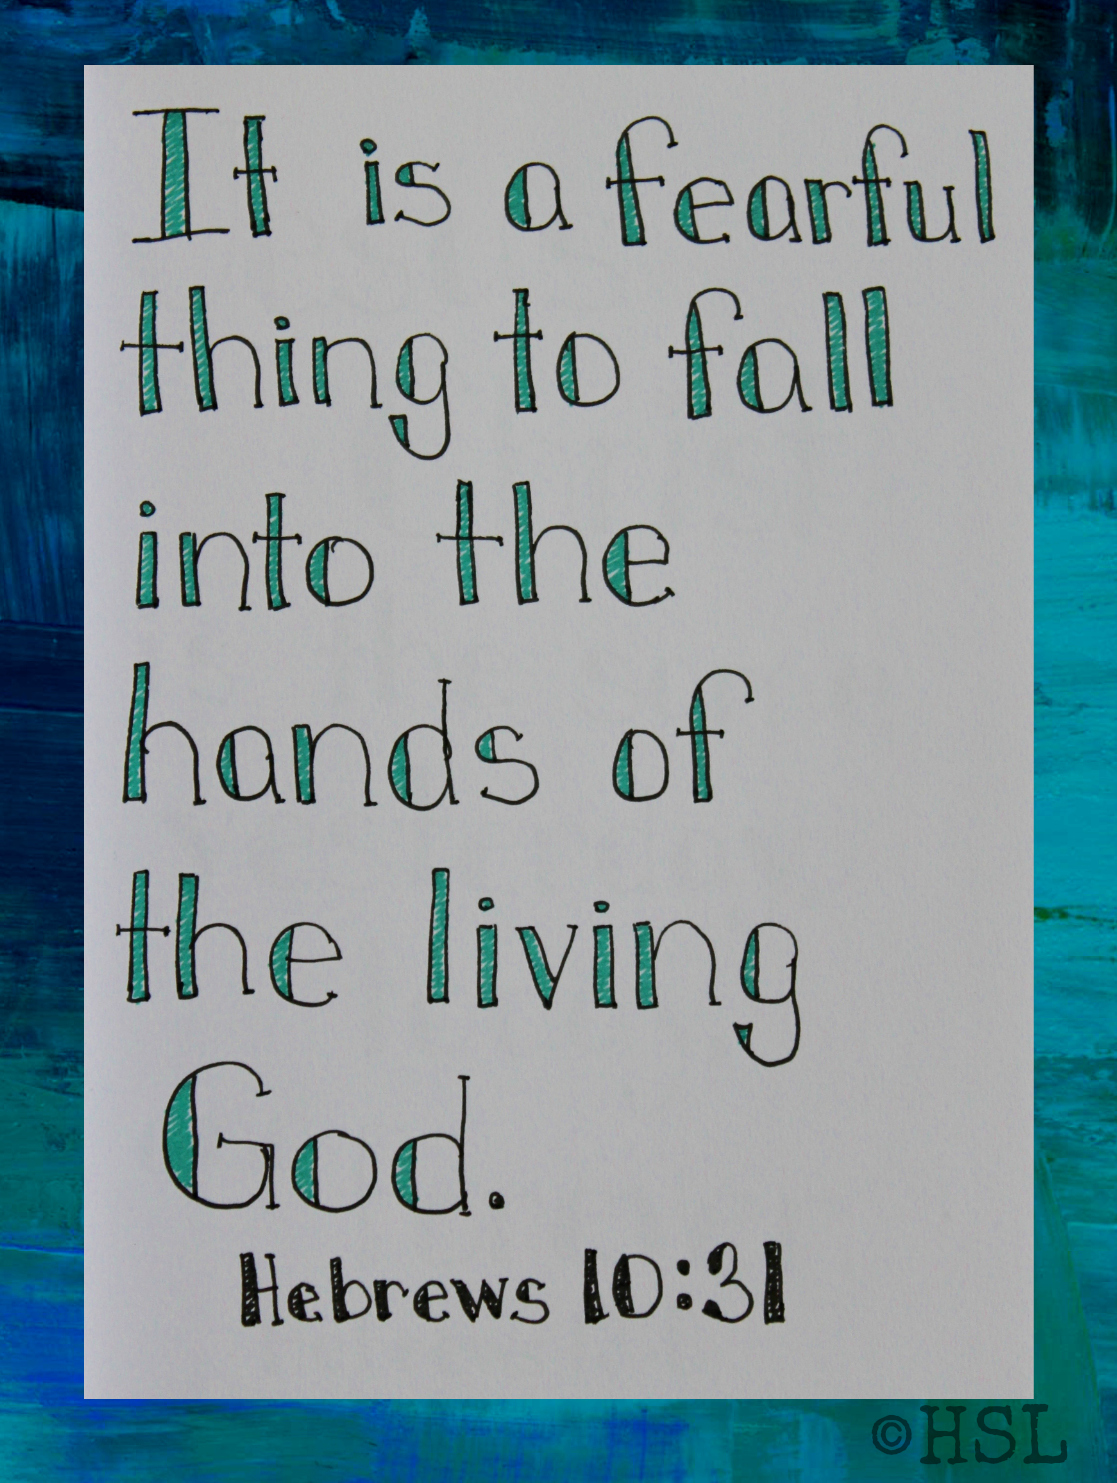 It is a fearful
thing to fall
into the
hands of
the living
God.
Hebrews 10:31
©HSL